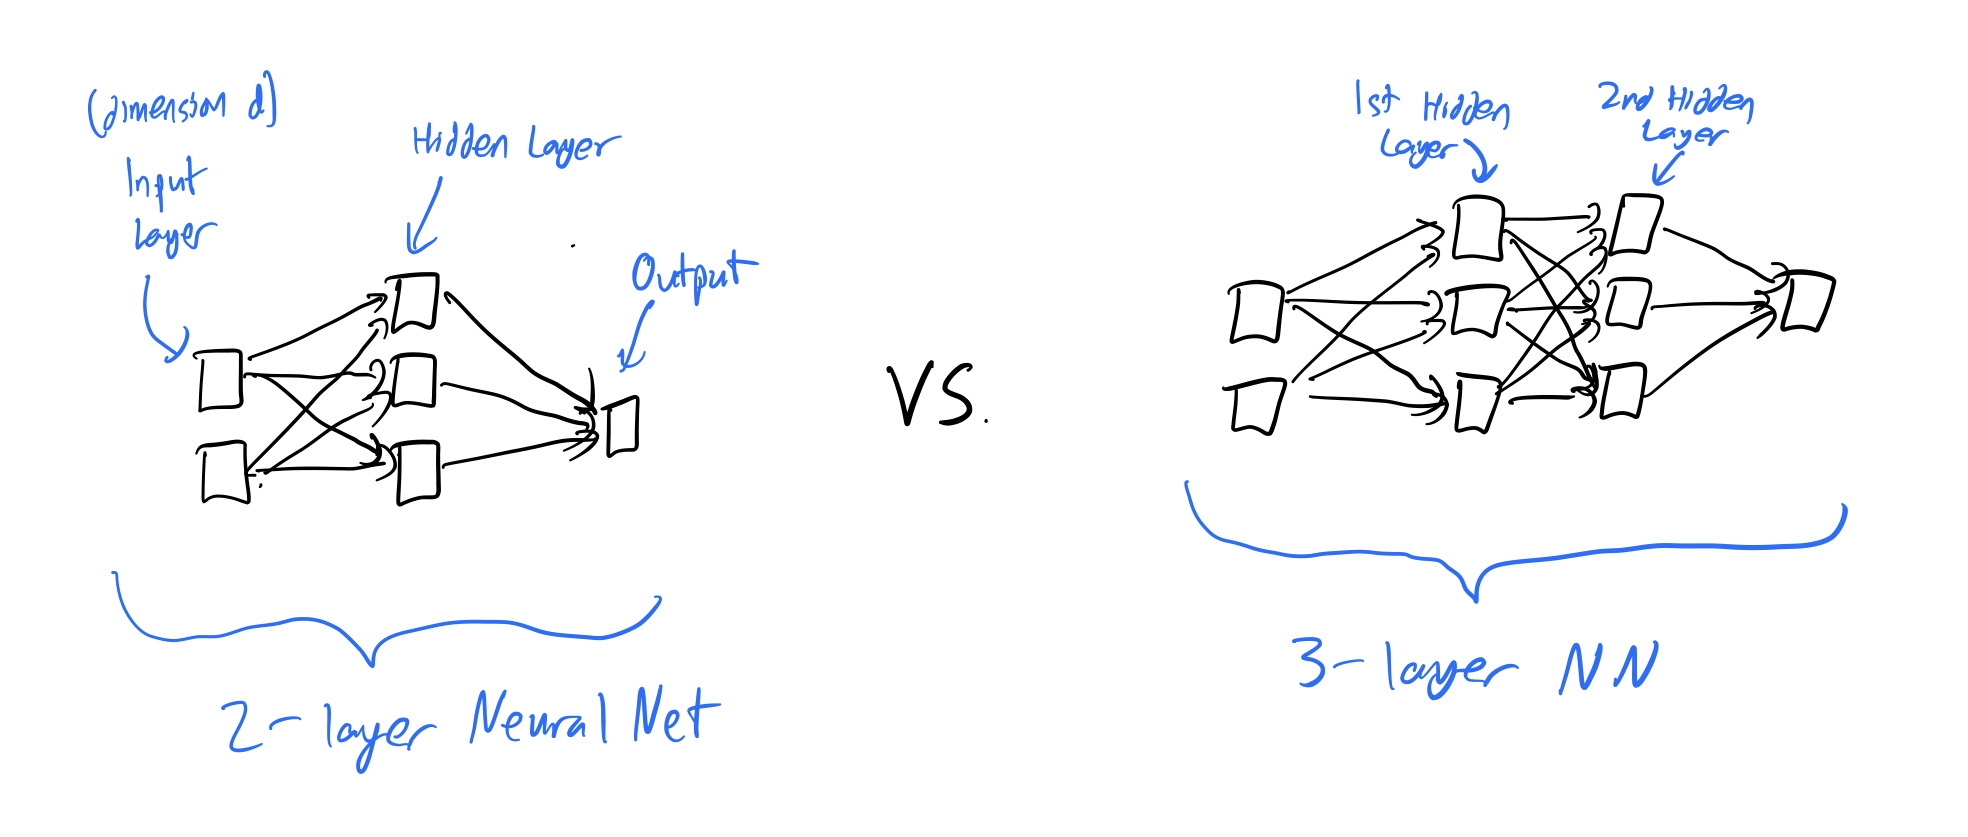 (dimension d)
Input
Layer
Hidden Layer
Output
2-layer Neural Net
VS.
1st Hidden
Layer
2nd Hidden
Layer
3-layer NN